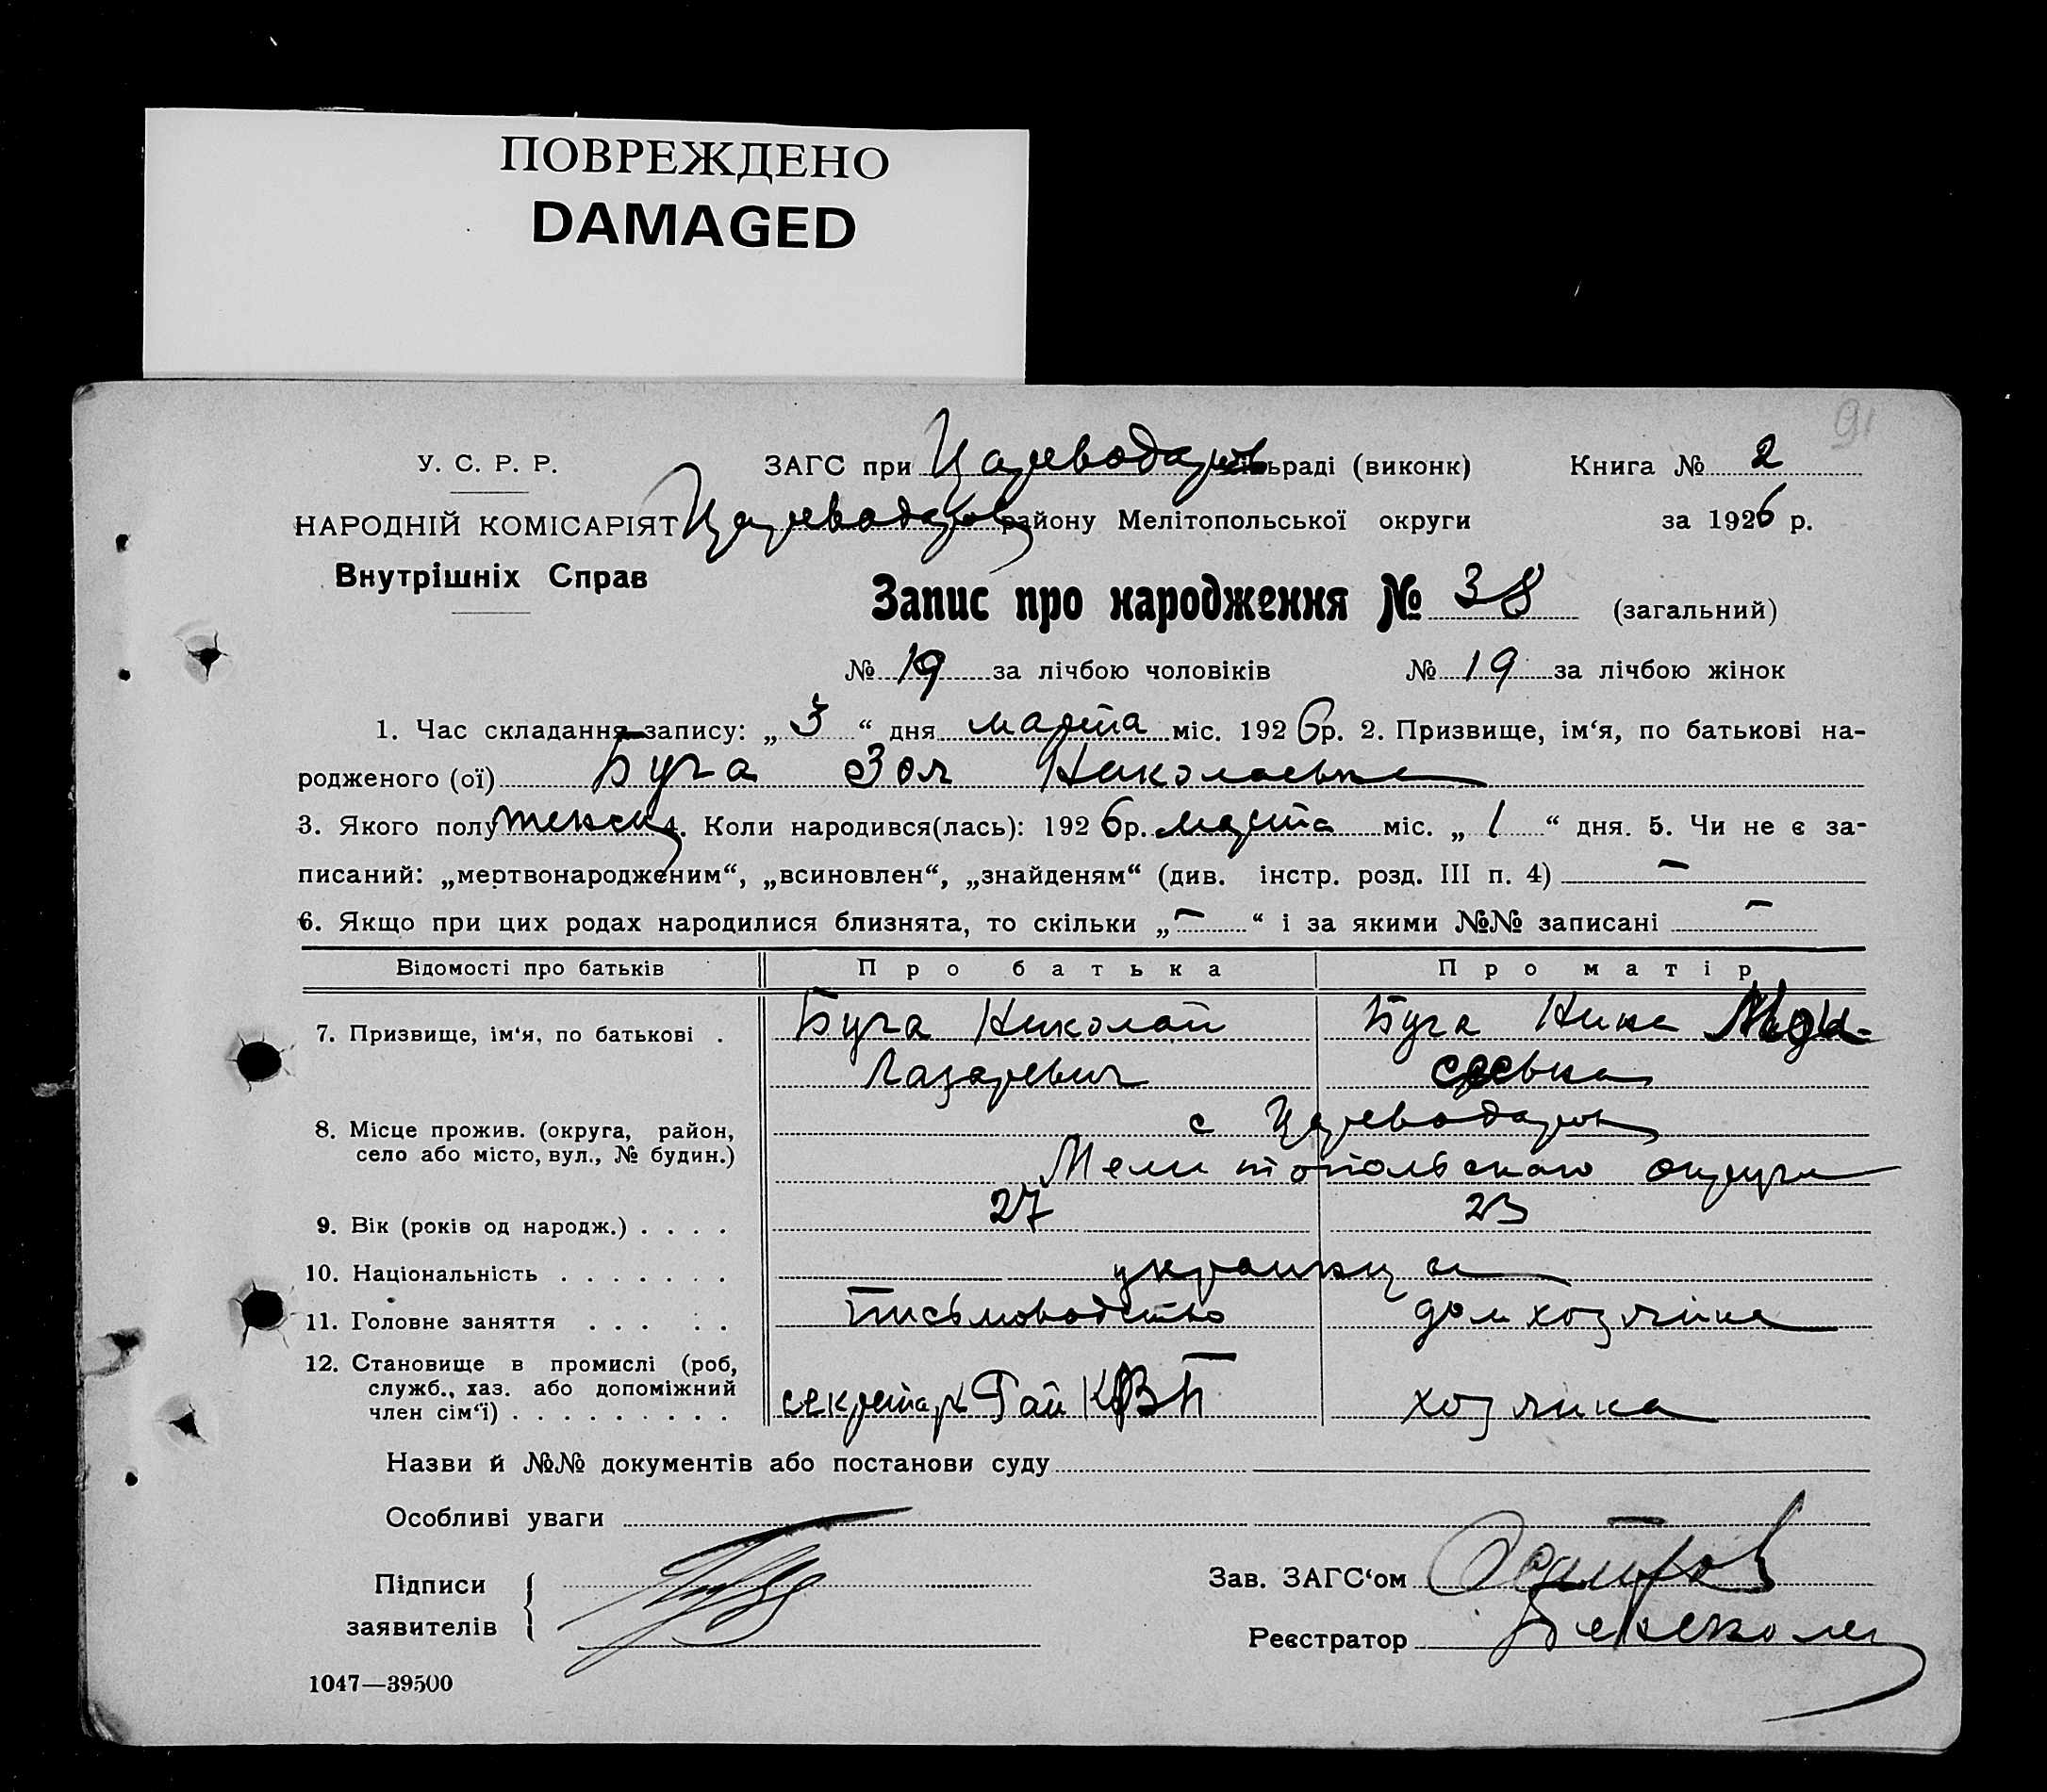 ПОВРЕЖДЕНО
DAMAGED
91
У. С. Р. Р. ЗАГС при Цареводаров сільраді (виконк) Книга № 2
НАРОДНІЙ КОМІСАРІЯТ Цареводаров району Мелітопольської округи за 1926 р.
Внутрішніх Справ
Запис про народження № 38 (загальний)
№ 19 за лічбою чоловіків № 19 за лічбою жінок
1. Час складання запису: „ 3 “ дня марта міс. 1926 р. 2. Призвище, ім‘я, по батькові на-
родженого (ої) Буга Зоя Николаевна
3. Якого полу женск 4. Коли народився(лась): 1926 р. марта міс. „ 1 “ дня. 5. Чи не є за-
писаний: „мертвонародженим“, „всиновлен“, „знайденям“ (див. інстр. розд. III п. 4) —
6. Якщо при цих родах народилися близнята, то скільки „ — “ і за якими №№ записані —
Відомості про батьків Про батька Про матір
7. Призвище, ім‘я, по батькові . Буга Николай Буга Нина
Лазаревич
8. Місце прожив. (округа, район, с Цареводаровка
село або місто, вул., № будин.) Мелитопольского округа
9. Вік (років од народж.) . . . . 27 23
10. Національність . . . . . . . украинцы
11. Головне заняття . . . . . письмоводство дом хозяйка
12. Становище в промислі (роб,
служб., хаз. або допоміжний секретар Рай КВП хозяйка
член сім‘ї) . . . . . . . . .
Назви й №№ документів або постанови суду
Особливі уваги
Підписи Зав. ЗАГС‘ом
заявителів Реєстратор
1047—39500